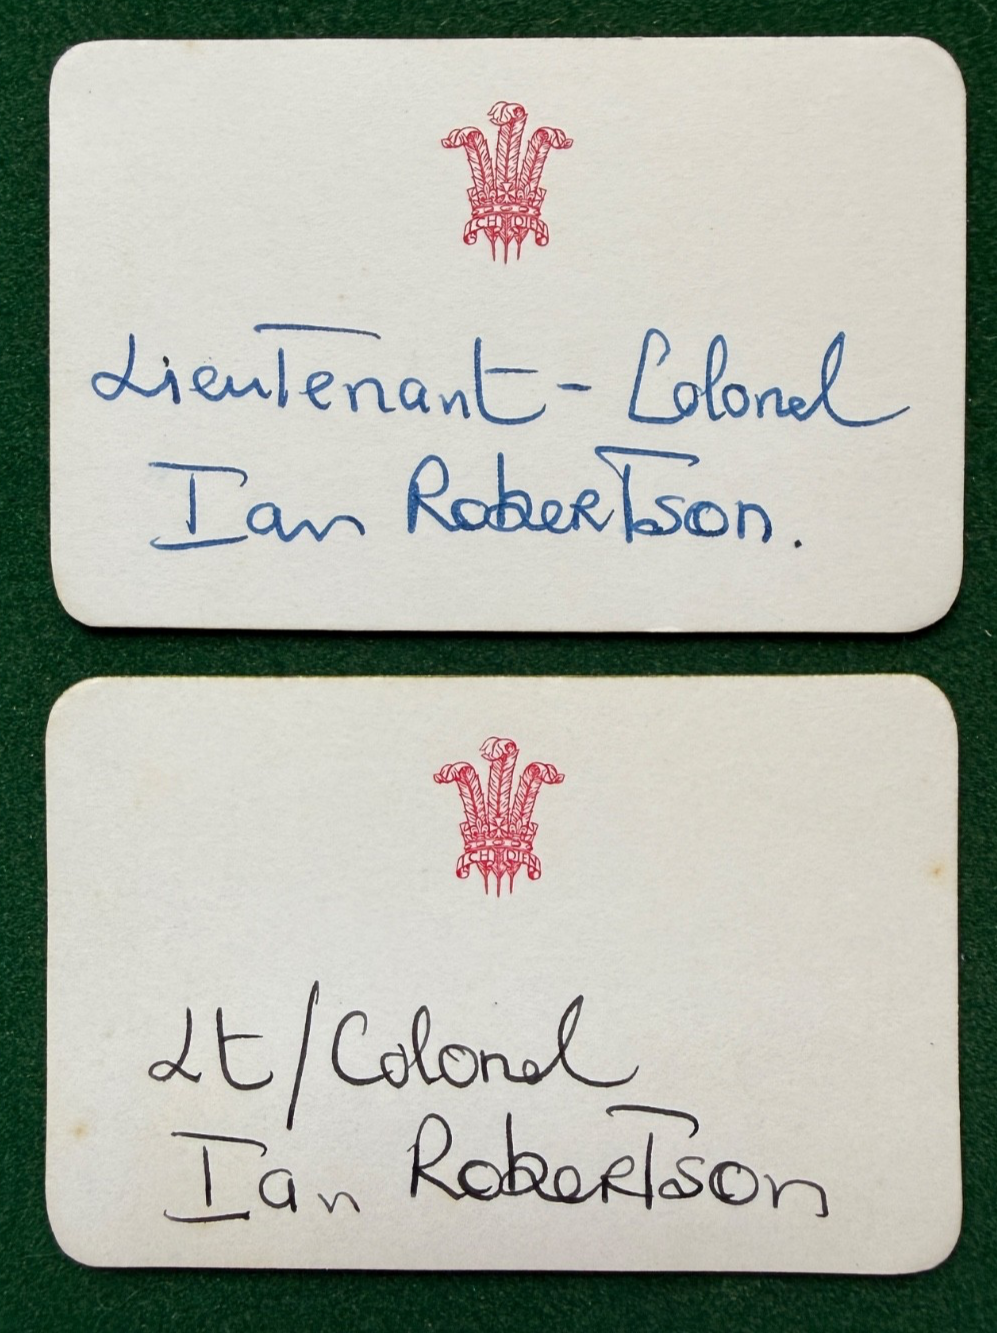 ICH DIEN
Lieutenant - Colonel
Ian Robertson.
ICH DIEN
Lt/Colonel
Ian Robertson